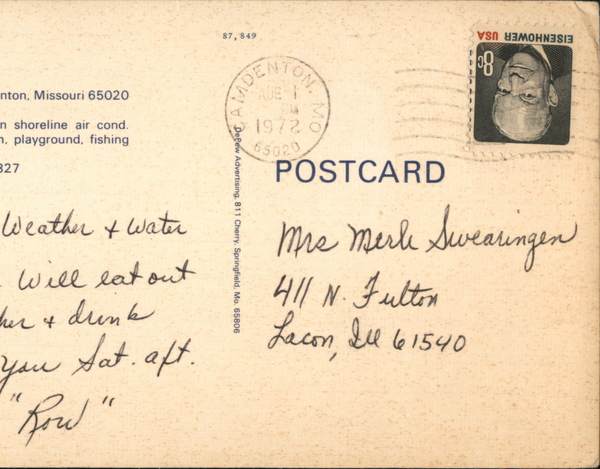 87, 849
nton, Missouri 65020
n shoreline air cond.
n, playground, fishing
327
Weather + Water
Will eat out
her + drink
you Sat. aft.
"Row"
CAMDENTON, MO
1
1972
65020
DePew Advertising, 811 Cherry, Springfield, Mo. 65806
EISENHOWER USA
8c
POSTCARD
Mrs Merle Swearingen
411 N. Fulton
Lacon, Ill 61540